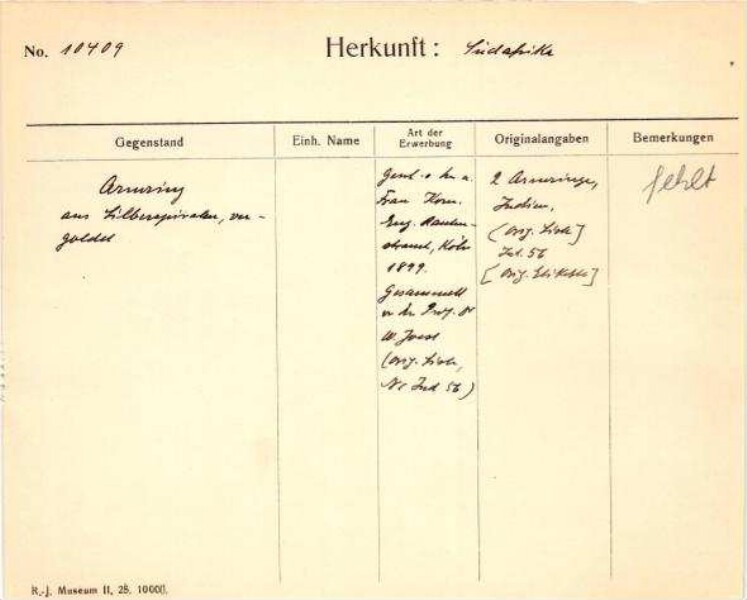 No. 10409
Herkunft: Südafrika
Gegenstand
Einh. Name
Art der
Erwerbung
Originalangaben
Bemerkungen
Armring
aus Silberspiralen, ver-
goldet
Frau Kom.
Eug. Rauten-
strauch, Köln
1899.
Gesammelt
W. Joest
(Orig. Liste,
Nr Ind 56)
2 Armringe,
Indien.
[Orig. Liste]
Ind. 56
[Orig. Etikette]
fehlt
R.-J. Museum II, 28. 10000.